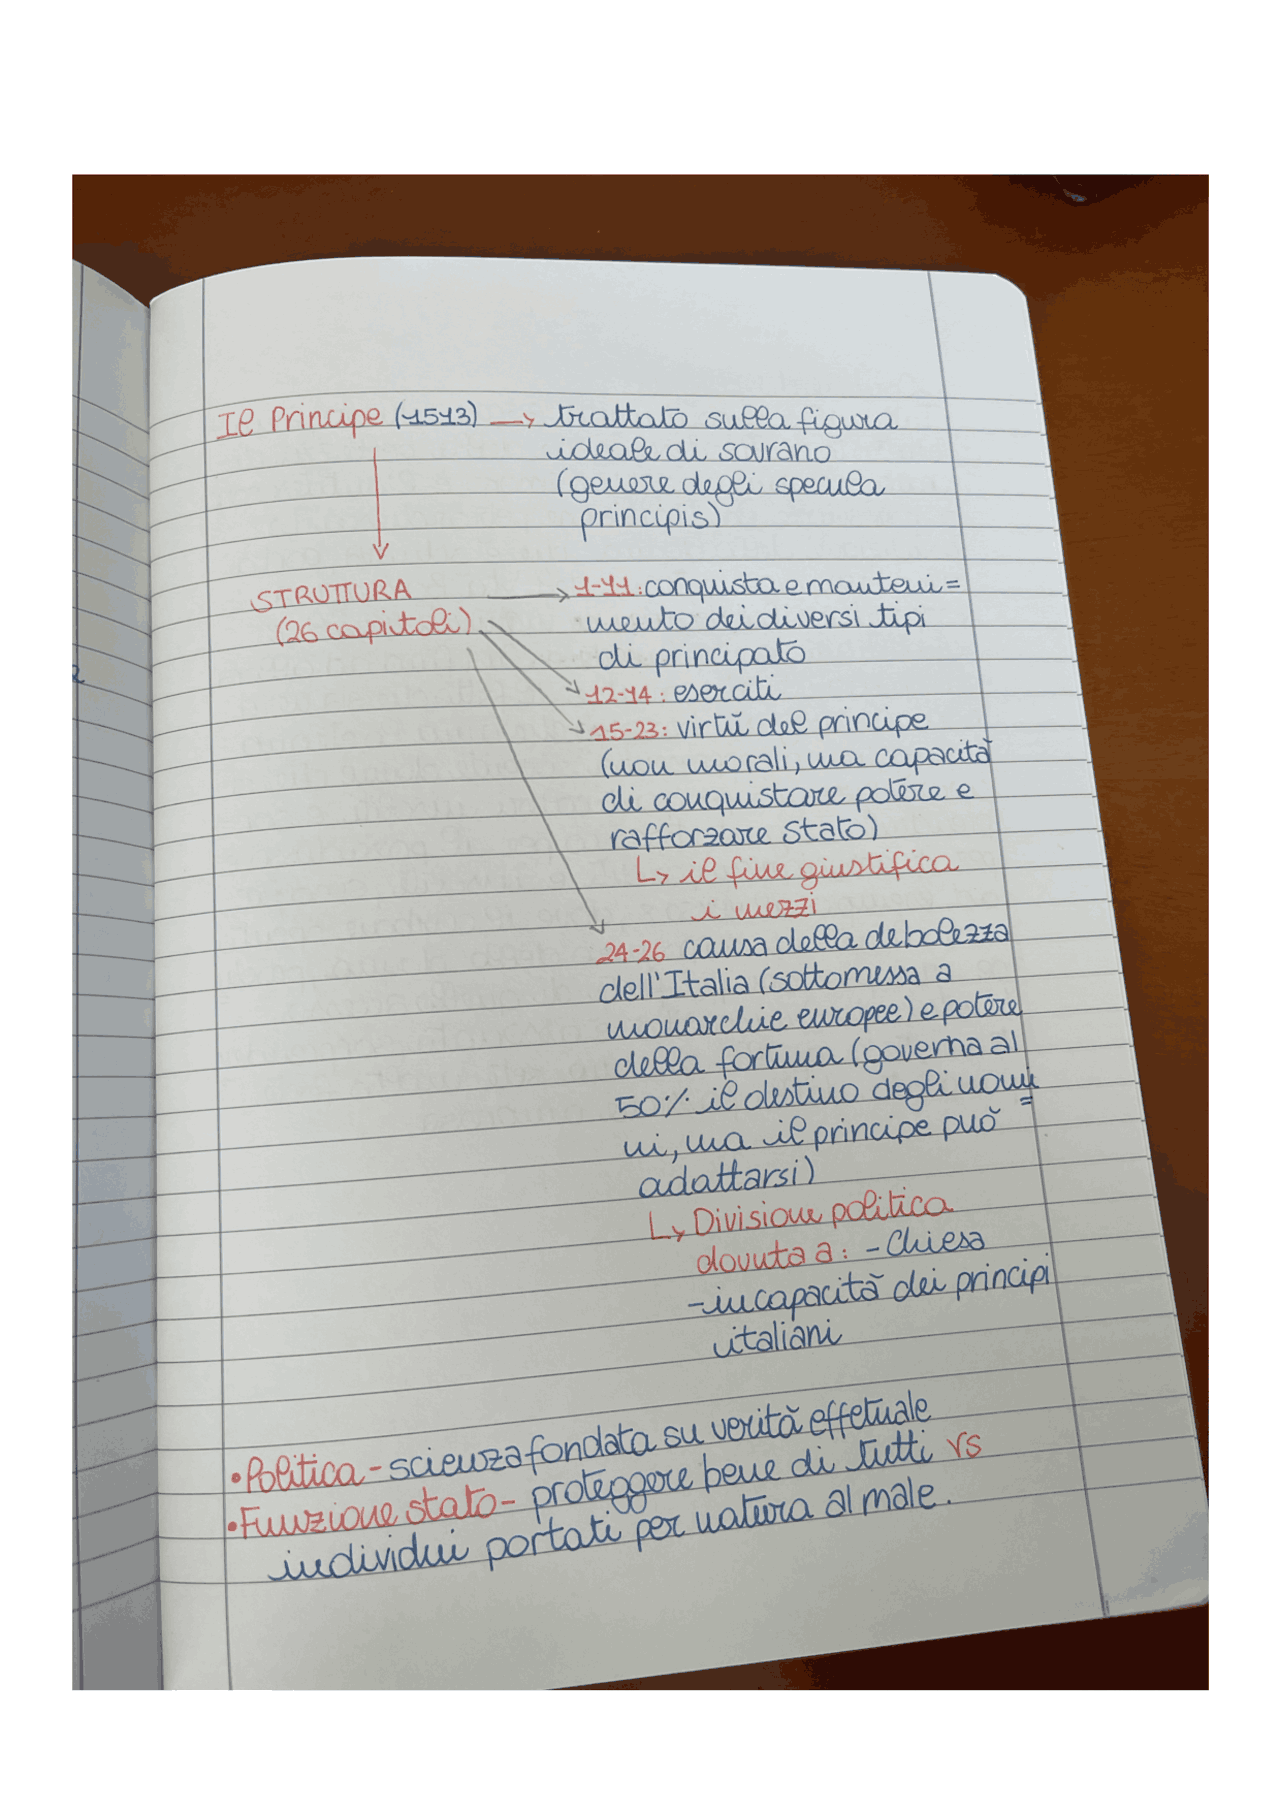 Il Principe (1513) → trattato sulla figura
ideale di sovrano
(genere degli specula
principis)
STRUTTURA
(26 capitoli)
→ 1-11: conquista e manteni=
mento dei diversi tipi
di principato
12-14: eserciti
15-23: virtù del principe
(non morali, ma capacità
di conquistare potere e
rafforzare stato)
↳ il fine giustifica
i mezzi
24-26 causa della debolezza
dell'Italia (sottomessa a
monarchie europee) e potere
della fortuna (governa al
50% il destino degli uomi=
ni, ma il principe può
adattarsi)
↳ Divisione politica
dovuta a: - Chiesa
- incapacità dei principi
italiani
• Politica - scienza fondata su verità effetuale
• Funzione stato - proteggere bene di tutti vs
individui portati per natura al male.